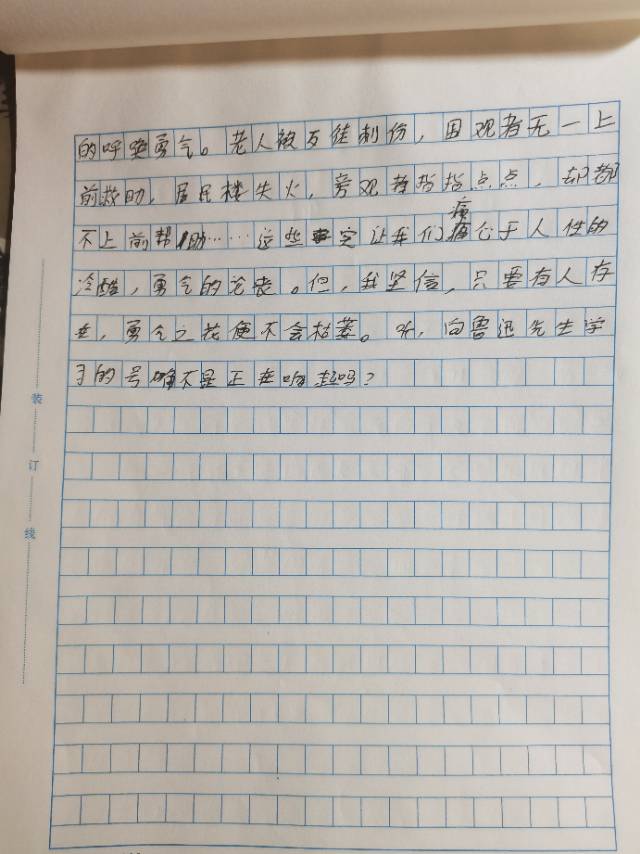 的呼唤勇气。老人被歹徒刺伤，围观者无一上
前救助，居民楼失火，旁观者指指点点，却都
不上前帮助……这些事实让我们痛心于人性的
冷酷，勇气的沦丧。但，我坚信，只要有人存
在，勇气之花便不会枯萎。听，向鲁迅先生学
习的号角不是正在响起吗？
装
订
线